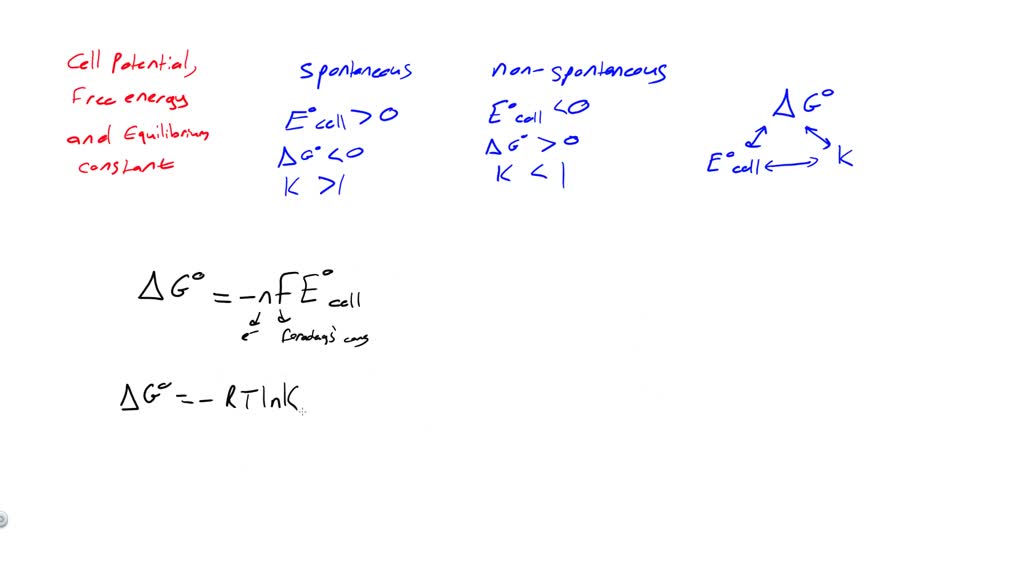 Cell Potential,
Free energy
and Equilibrium
constant
spontaneous
E°cell > 0
ΔG° < 0
K > 1
non-spontaneous
E°cell < 0
ΔG° > 0
K < 1
ΔG°
E°cell ↔ K
ΔG° = -nFE°cell
e⁻ faraday's cons
ΔG° = - RTlnK